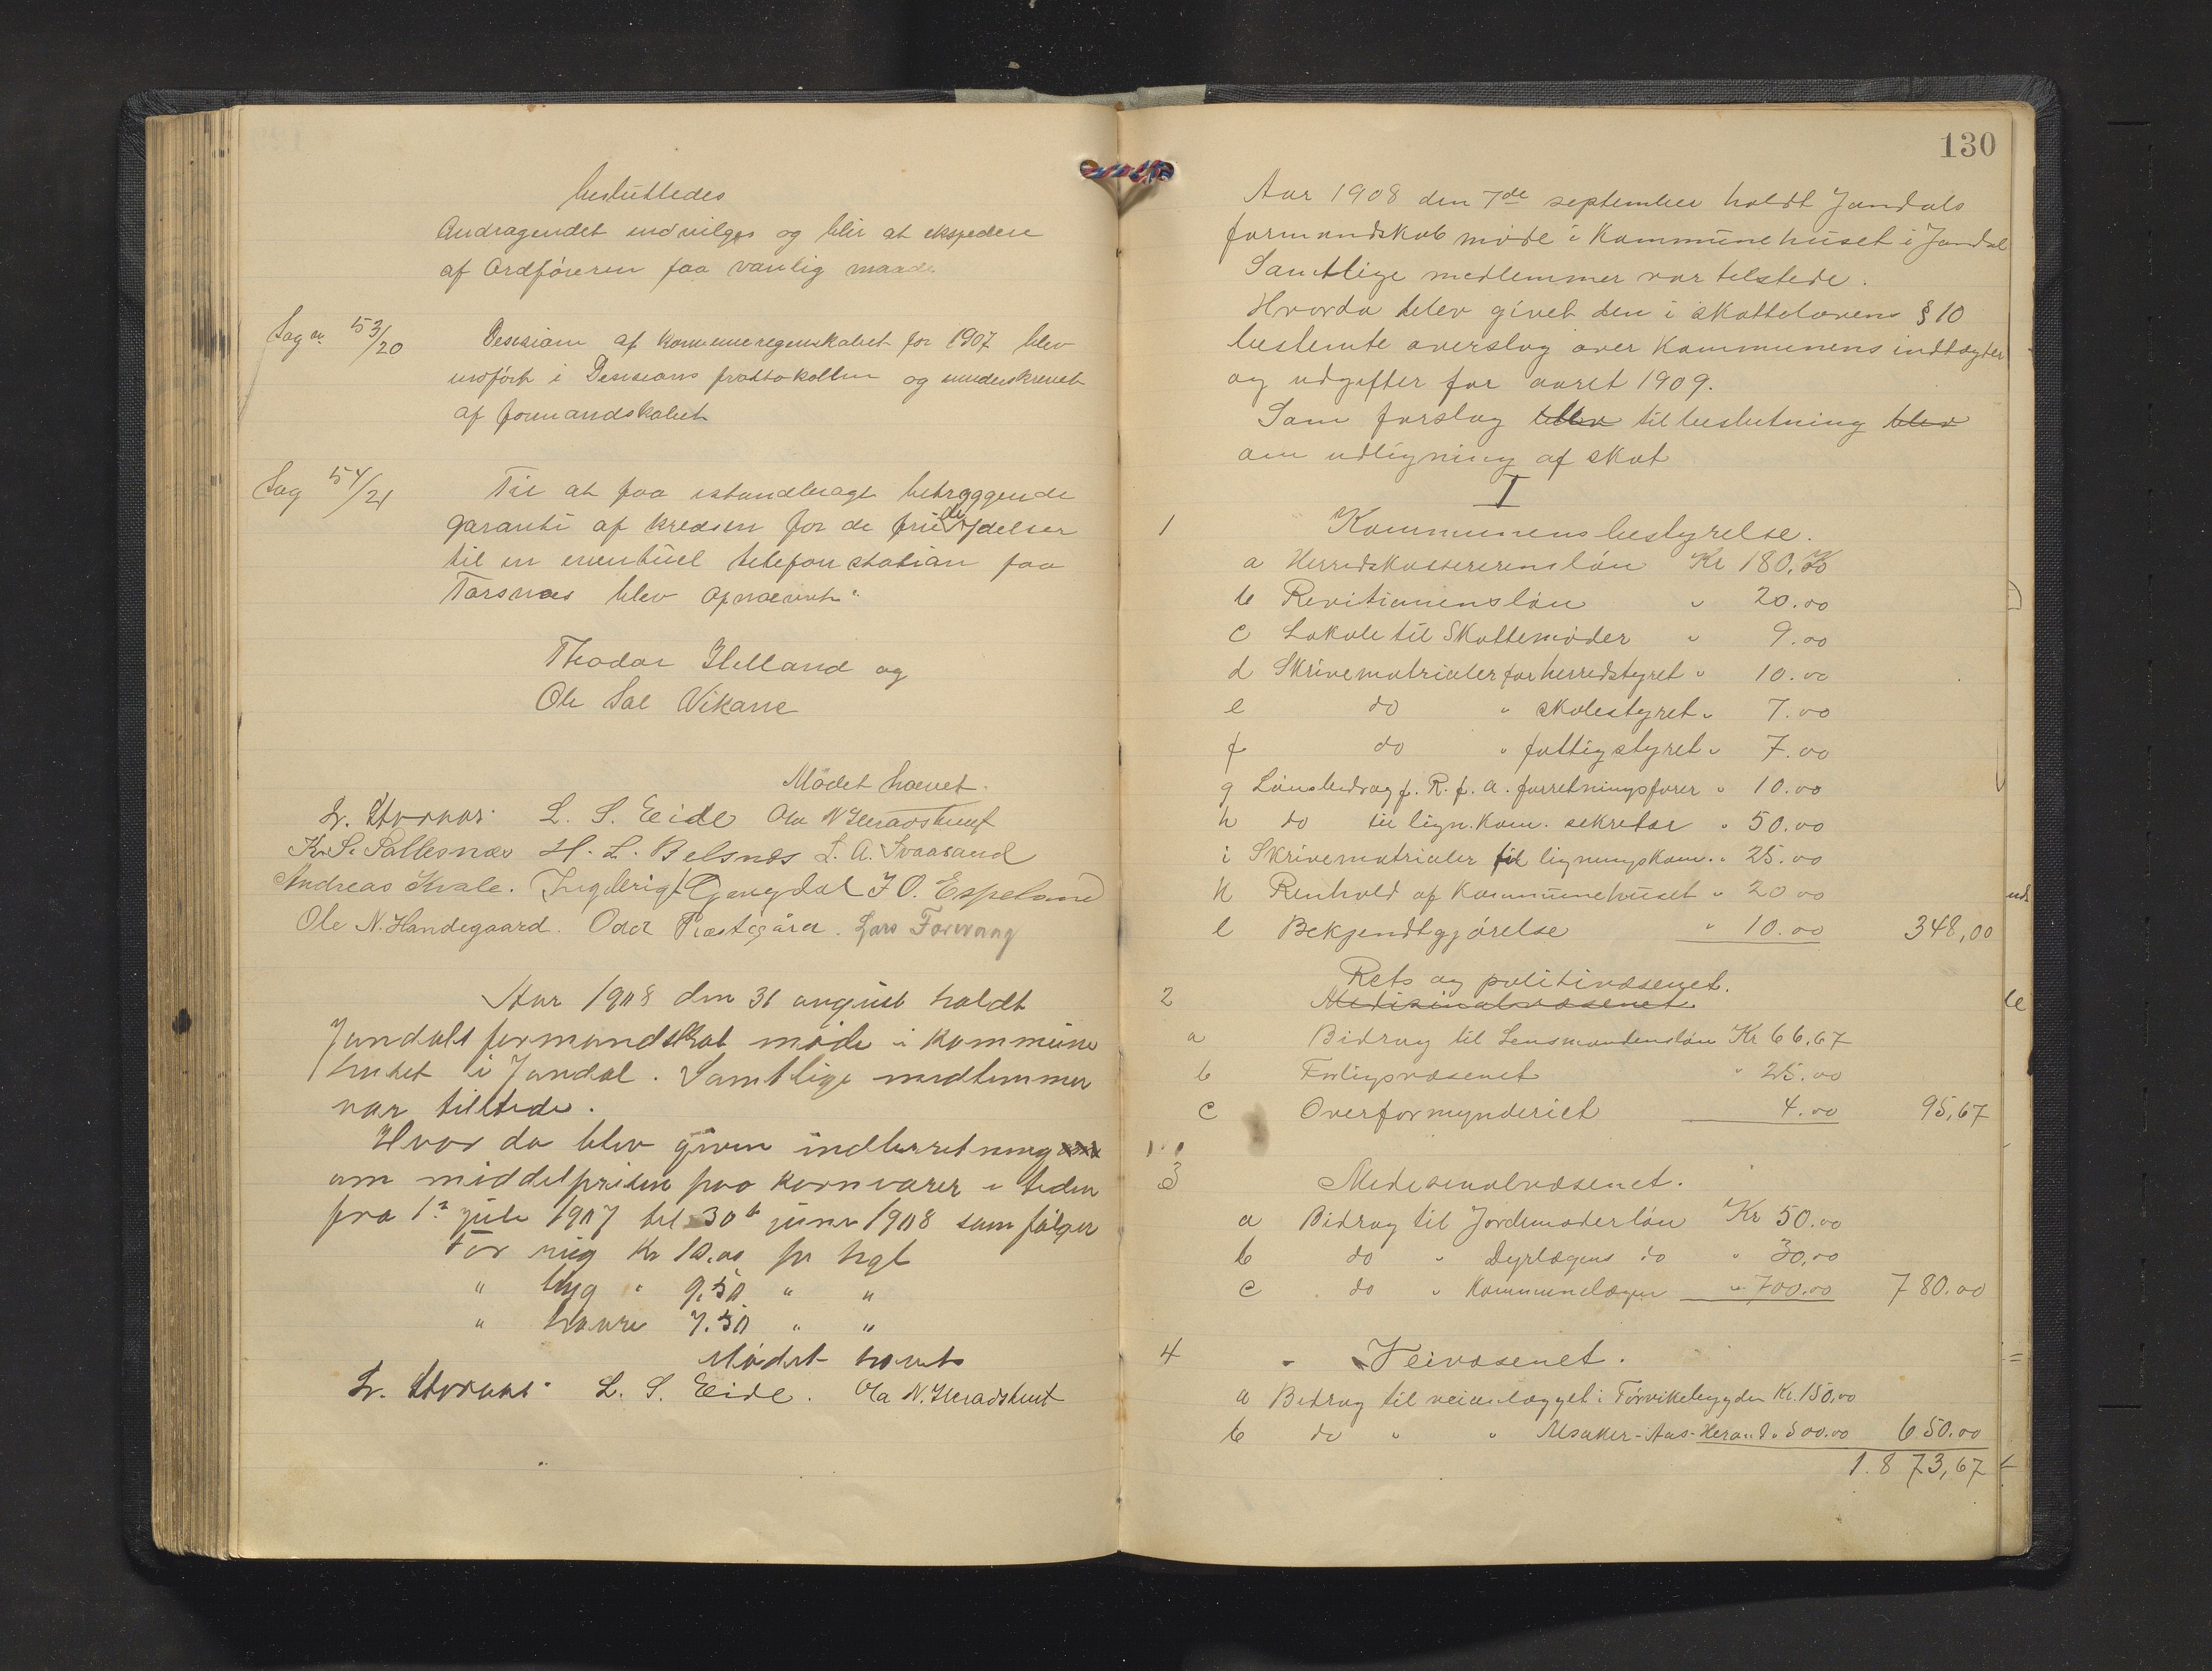 besluttedes
Andragendet indvilges og blir at ekspedere
af Ordføreren paa vanlig maade
Sag n. 53/20 Desisiom af kommuneregnskabet for 1907 blev
indført i Desisions prottokollen og underskrevet
af formandskabet
Sag 54/21 Til at faa istandbragt betryggende
garanti af kredsen for de frie ydelser
til en eventuel telefonstation paa
Tarsnæs blev opnævnt:
Thodor Helland og
Ole Sal Vikane
Mødet hævet.
L. S. Eide Ola N Heradstveit
K. S. Sallesnæs H. L. Belsnæs L. A. Svaasand
Andreas Kvale. Ingebrigt Gjøngdal J O. Espeland
Ole N. Handegaard. Odd Prestegård. Lars Torvang
Aar 1908 den 31 august holdt
Jondals formandskab møde i kommune
huset i Jondal. Samtlige medlemmer
var tilstede.
Hvor da blev given indberretning
om middelprisen paa kornvarer i tiden
fra 1ste juli 1907 til 30te juni 1908 som følger
For rug Kr 10.00 pr hgl
" byg " 9.50 " "
" havre 7.50 " "
Mødet hævet
L. S. Eide. Ola N. Heradstveit
130
Aar 1908 den 7de september holdt Jondals
formandskab møde i Kommunehuset i Jondal
Samtlige medlemmer var tilstede.
Hvorda blev givet den i skattelovens § 10
bestemte overslag over Kommunens indtægter
og udgifter for aaret 1909.
Som forslag blev til beslutning blev
om udligning af skat
I
1 Kommunens bestyrelse.
a Herredskassererensløn Kr 180.00
b Revitionensløn " 20.00
c Lokale til Skattemøder " 9.00
d Skrivematrialer for herredstyret " 10.00
e do " skolestyret " 7.00
f do " fattigstyret " 7.00
g Lønsbedrag f. R. f. A. forretningsfører " 10.00
h do til lign. kom. sekretær " 50.00
i Skrivematrialer til ligningskom. " 25.00
k Renhold af Kommunehuset " 20.00
l Bekjendtgjørelse " 10.00 348,00
Rets og politivæsenet.
2 Medisinalvæsenet
a Bidrag til Lensmandensløn Kr 66,67
b Forligsvæsenet " 25.00
c Overformynderiet 4.00 95,67
3 Medesinalvæsenet.
a Bidrag til Jordemoderløn Kr 50.00
b do " Dyrlægens do " 30,00
c do " Kommunelægen " 700.00 780.00
4 Veivæsenet.
a Bidrag til veianlægget i Tørvikebygden Kr. 150,00
b do " " Alsaker-Aas-Herand " 500.00 650.00
1.873,67